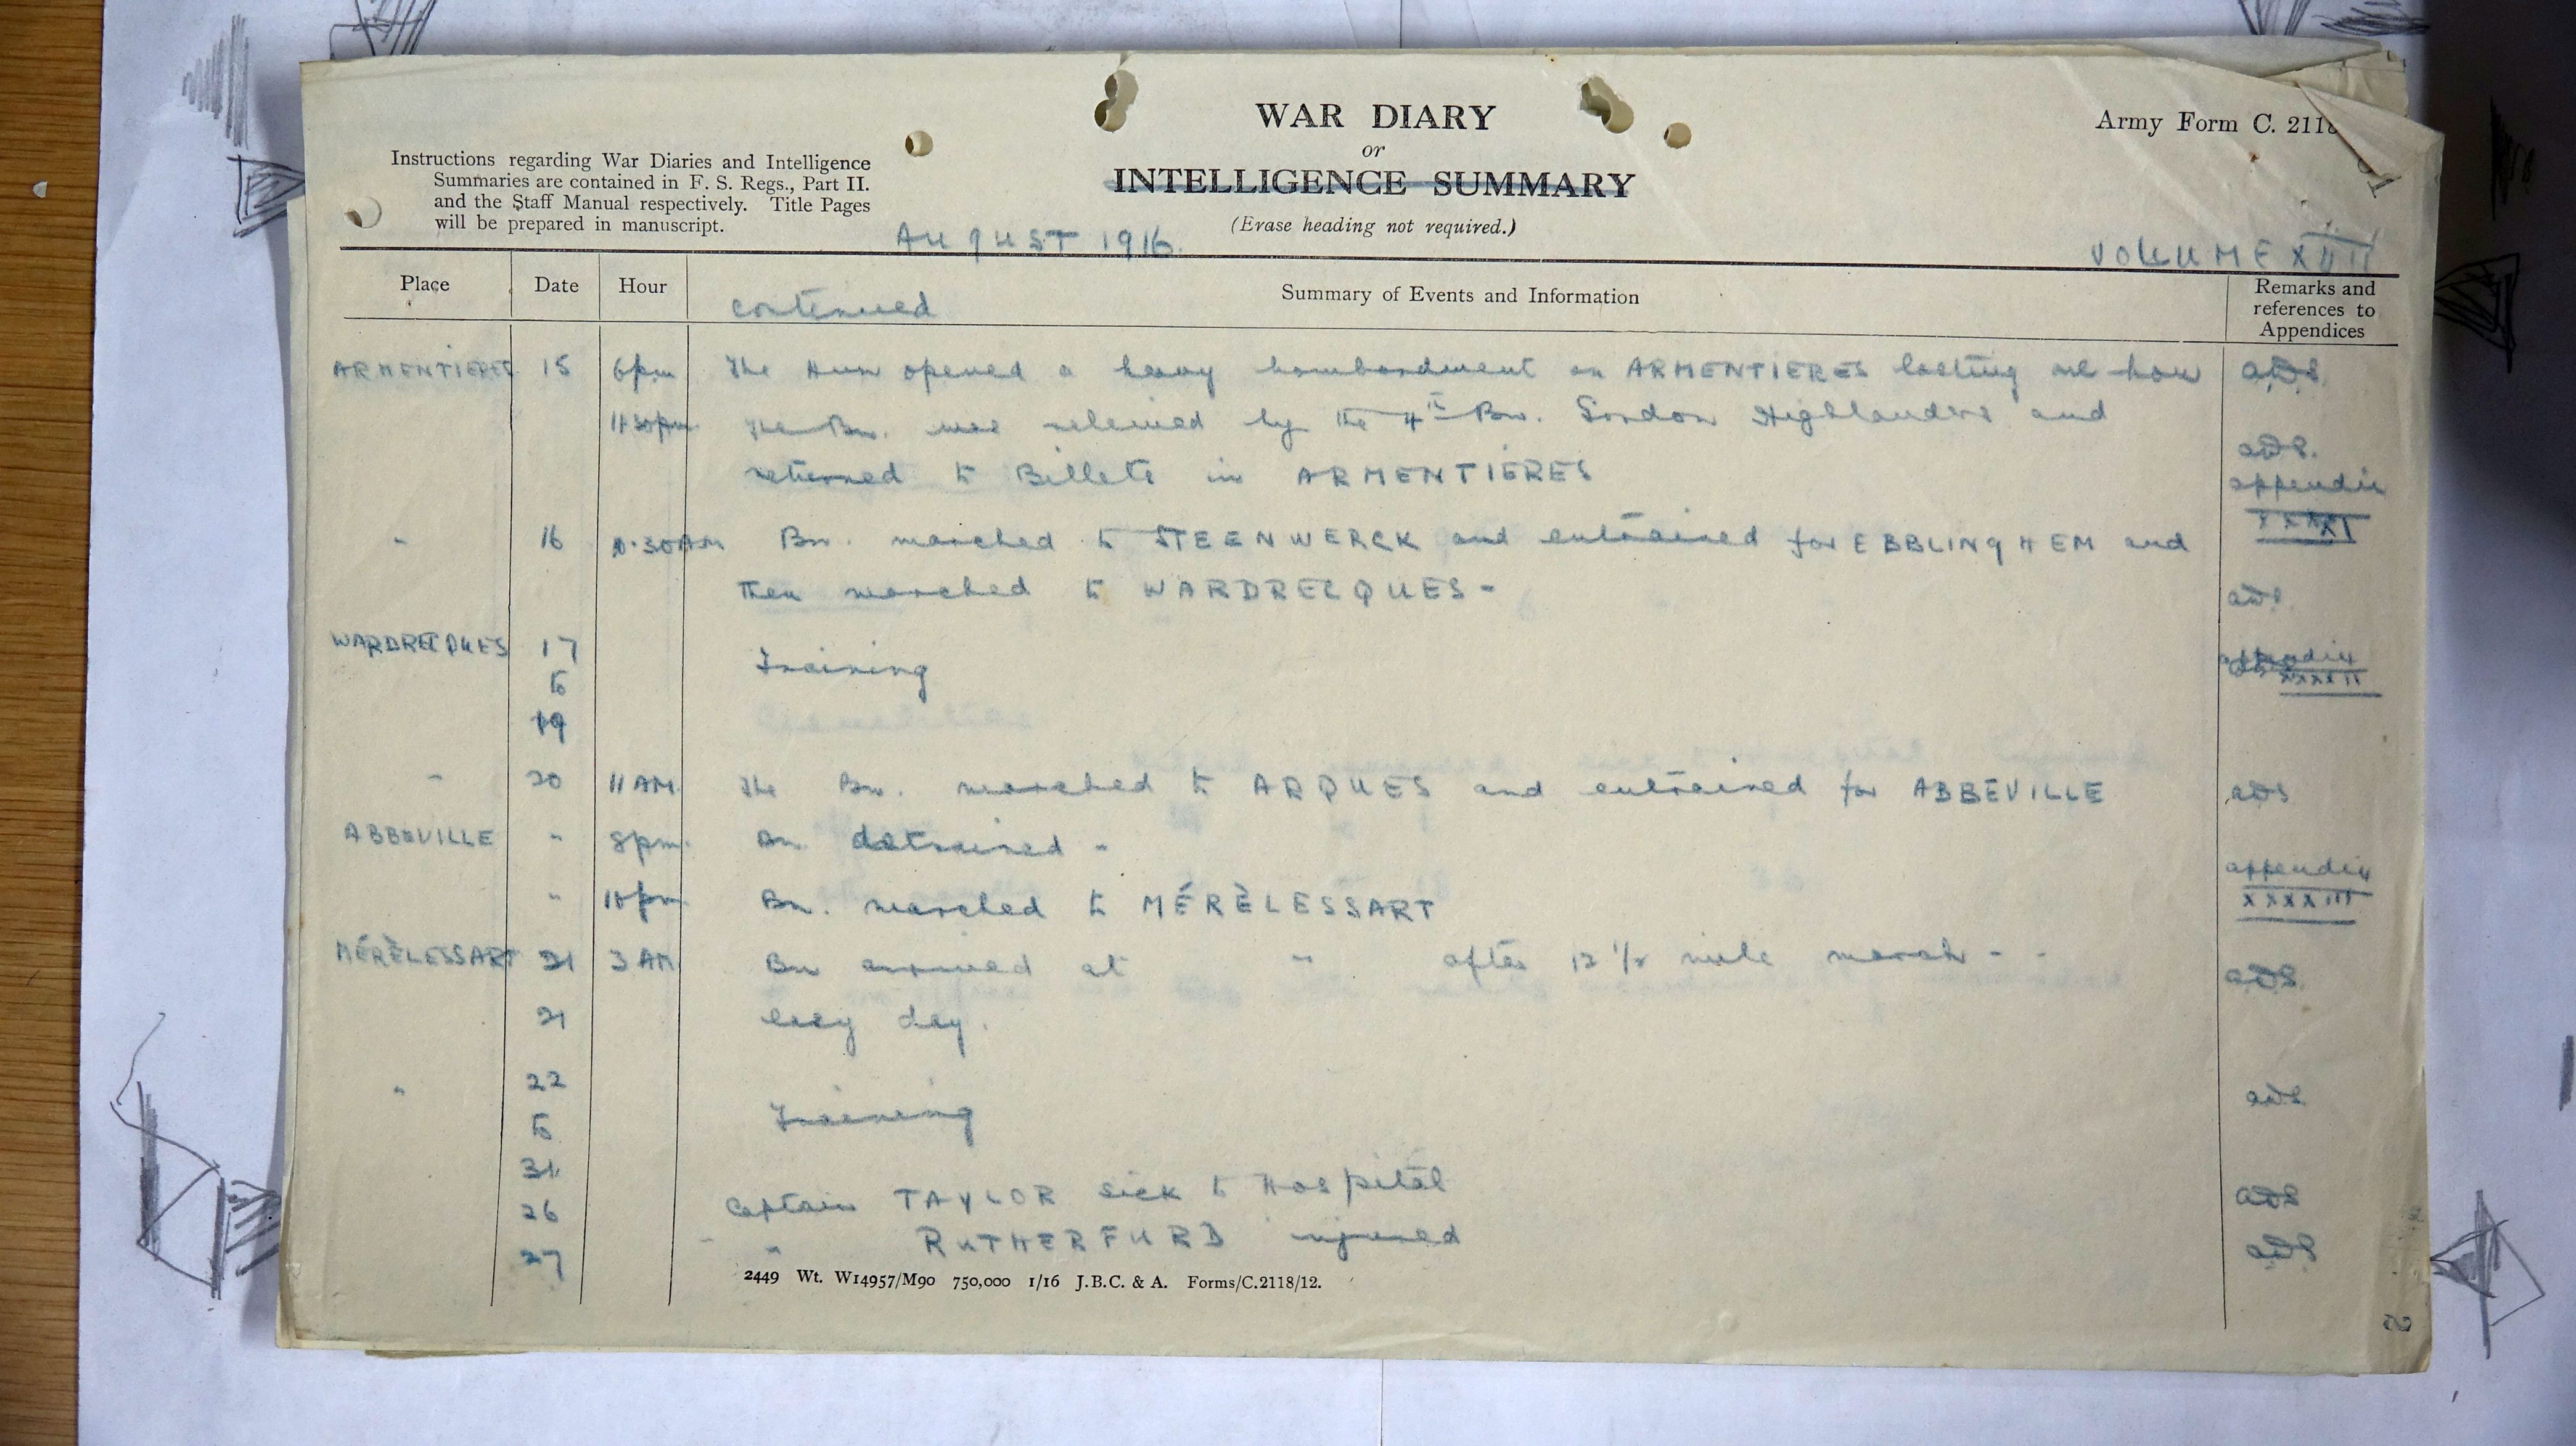 WAR DIARY
or
INTELLIGENCE SUMMARY
(Erase heading not required.)
Army Form C. 2118
Instructions regarding War Diaries and Intelligence
Summaries are contained in F. S. Regs., Part II.
and the Staff Manual respectively. Title Pages
will be prepared in manuscript.
AUGUST 1916.
VOLUME XIII
Place Date Hour Summary of Events and Information Remarks and
references to
Appendices
continued
ARMENTIERES 15 6pm The Hun opened a heavy bombardment on ARMENTIERES lasting one hour ADS.
11.30pm The Bn. was relieved by the 4th Bn. Gordon Highlanders and
returned to Billets in ARMENTIERES ADS.
appendix
XXXXI
" 16 Bn. marched to STEENWERCK and entrained for EBBLINGHEM and
then marched to WARDRECQUES - ADS.
WARDRECQUES 17 Training appendix
to XXXXII
19
" 20 11 AM. The Bn. marched to ARQUES and entrained for ABBEVILLE ADS
ABBEVILLE " 8pm. Bn. detrained -
" Bn. marched to MÉRÈLESSART appendix
XXXXIII
MÉRÈLESSART 21 3 AM Bn arrived at " after 12 1/2 mile march - - ADS.
21 easy day.
" 22 Training ADS.
to
31
26 Captain TAYLOR sick to Hospital ADS
27 " RUTHERFURD injured ADS
2449 Wt. W14957/M90 750,000 1/16 J.B.C. & A. Forms/C.2118/12.